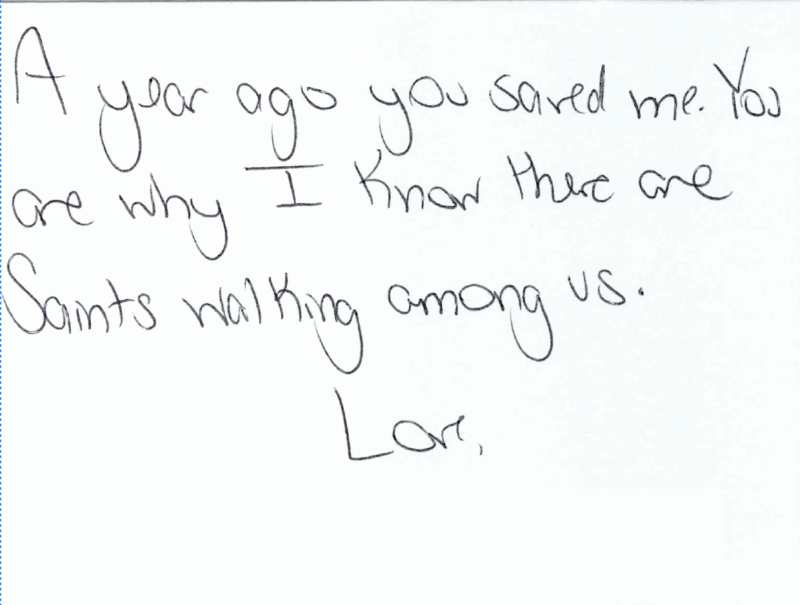 A year ago you saved me. You
are why I know there are
Saints walking among us.
Love,